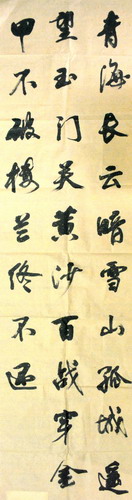 青海长云暗雪山孤城遥
望玉门关黄沙百战穿金
甲不破楼兰终不还